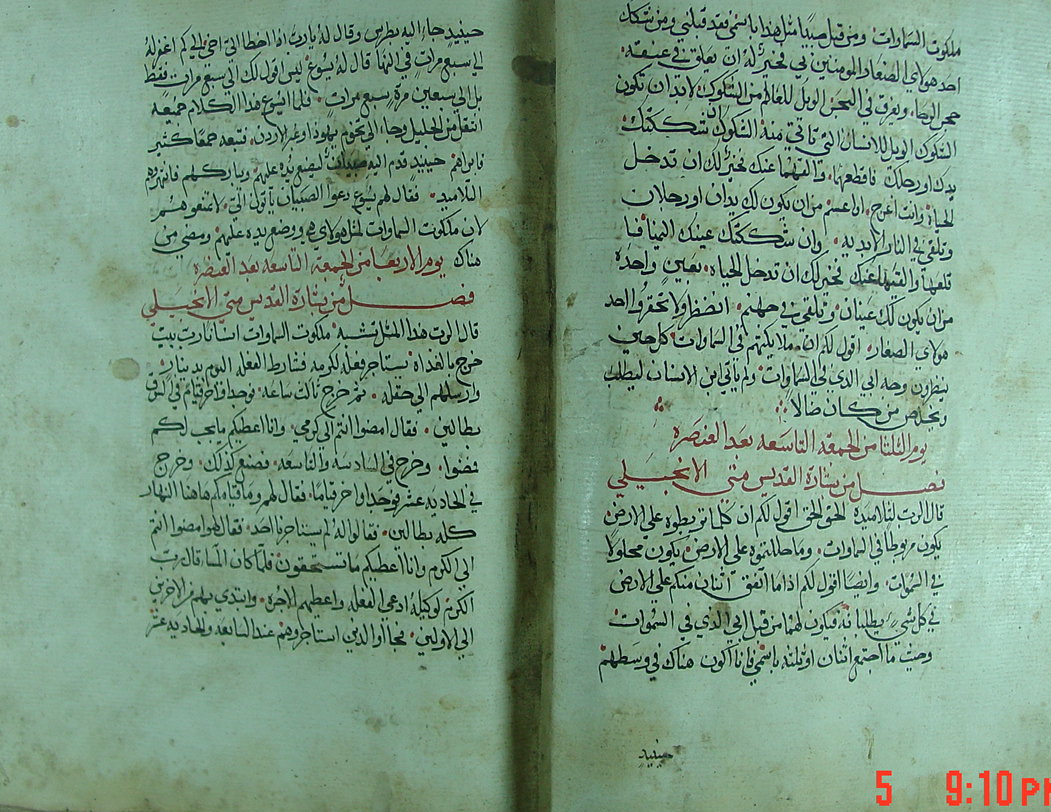 ملكوت السماوات ومن قبل صبيًا مثل هذا باسمي فقد قبلني ومن شكك
احد هولاي الصغار المومنين بي فخير له ان يعلق في عنقه
حجر الرحا ويغرق في البحر الويل للعالم من الشكوك لابد ان تكون
الشكوك الويل للانسان التي تاتي منه الشكوك ان شككتك
يدك او رجلك فاقطعها والقها عنك فخير لك ان تدخل
الحياة وانت اعرج او اعسم من ان يكون لك يدان او رجلان
وتلقي في النار الابديه وان شككتك عينك اليمنا فا
قلعها والقها عنك فخير لك ان تدخل الحياه بعين واحدة
من ان يكون لك عينان وتلقي في جهنم انضظروا لا تحقروا احد
هولاي الصغار اقول لكم ان ملايكتهم في السماوات كل حين
ينظرون وجه ابي الذي في السماوات ولم ياتي ابن الانسان ليطلب
ويخلص من كان ضالا
يوم الثلثا من الجمعه التاسعه بعد العنصره
فصل من بشارة القديس متي الانجيلي
قال الرب لتلاميذه الحق الحق اقول لكم ان كلما تربطوه علي الارض
يكون مربوطا في السماوات وما حللتموه علي الارض يكون محلولا
في السموات وايضا اقول لكم اذا ما اتفق اثنان منكم علي الارض
في كل شي يطلبانه فيكون لهما من قبل ابي الذي في السموات
وحيث ما اجتمع اثنان او ثلثه باسمي فانا اكون هناك في وسطهم
حينيذ
حينيذ جاء اليه بطرس وقال له يارب اذا اخطا الي اخي الي كم اغفر له
الي سبع مرات في النهار قال له يسوع ليس اقول لك الي سبع مرات فقط
بل الي سبعين مرة سبع مرات فلما اكمل يسوع هذا الكلام جميعه
انتقل من الجليل وجاء الي تخوم يهوذا وعبر الاردن فتبعه جمعًا كثير
فابراهم حينيذ قدم اليه صبيان ليضع يده عليهم ويباركهم فانتهره
التلاميد فقال لهم يسوع دعوا الصبيان ياتون الي لا تمنعوهم
لان ملكوت السماوات لمثل هولاي هي ووضع يده عليهم ومضي من
هناك يوم الاربعا من الجمعة التاسعه بعد العنصره
فصل من بشارة القديس متي الانجيلي
قال الرب هذا المثل تشبه ملكوت السماوات انسانا رب بيت
خرج بالغداة يستاجر فعله لكرمه فشارط الفعله اليوم بدينار
وارسلهم الي حقله ثم خرج ثالث ساعه فوجد اواخر قيام في السوق
بطالين فقال امضوا انتم الي كرمي وانا اعطيكم ما يجب لكم
فمضوا وخرج في السادسه والتاسعه فصنع كذلك وخرج
في الحاديه عشر فوجد اواخر قيامًا فقال لهم وما قيامكم هاهنا النهار
كله بطالين فقالوا له لم يستاجرنا احد فقال لهم امضوا انتم
الي الكرم وانا اعطيكم ما تستحقون فلما كان المسا قال رب
الكرم لوكيله ادعي الفعله واعطيهم الاجره وابتدي بهم من الاخرين
الي الاولين فجاوا الذين استاجروهم عند الساعه الحاديه عشر
5 9:10 PM